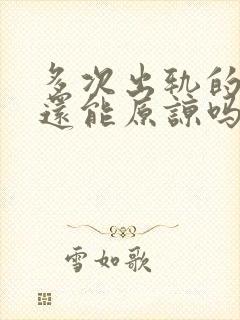 多次出轨的
還能原諒吗
雪如歌